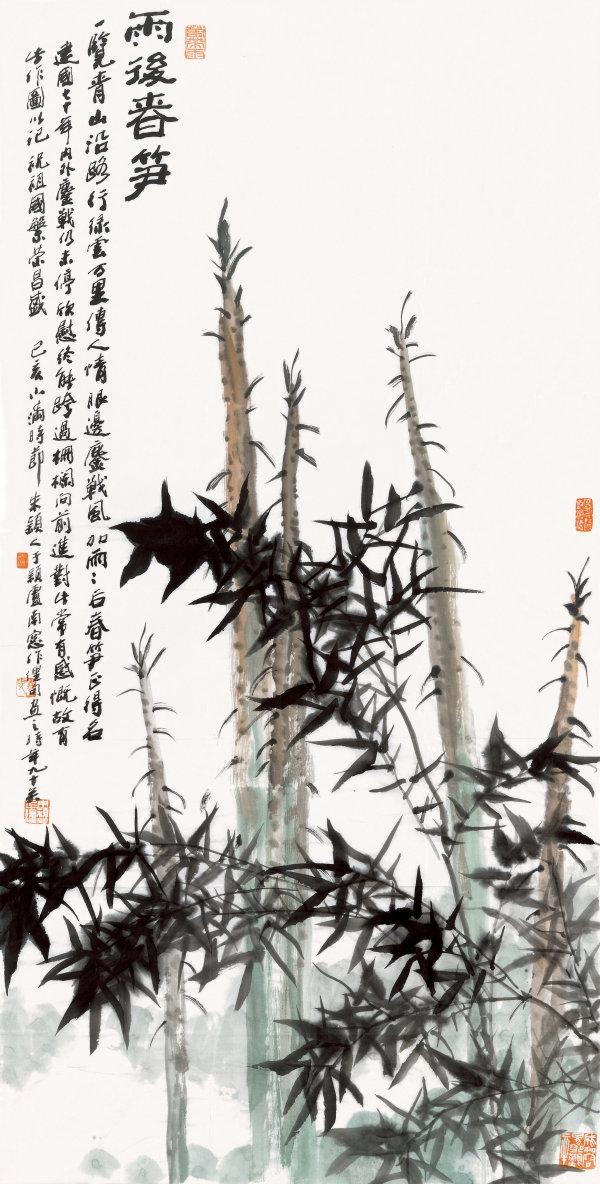 雨後春笋
一覽青山沿路行綠雲万里傳人情眼邊鏖戰風加雨雨后春笋正得名
建國七十年內外鏖戰仍未停欣慰终能跨過栅欄向前進對此常有感慨故有
此作圖以记祝祖國繁荣昌盛 己亥小满時節 朱穎人于穎廬南窓作畫 時年九十矣